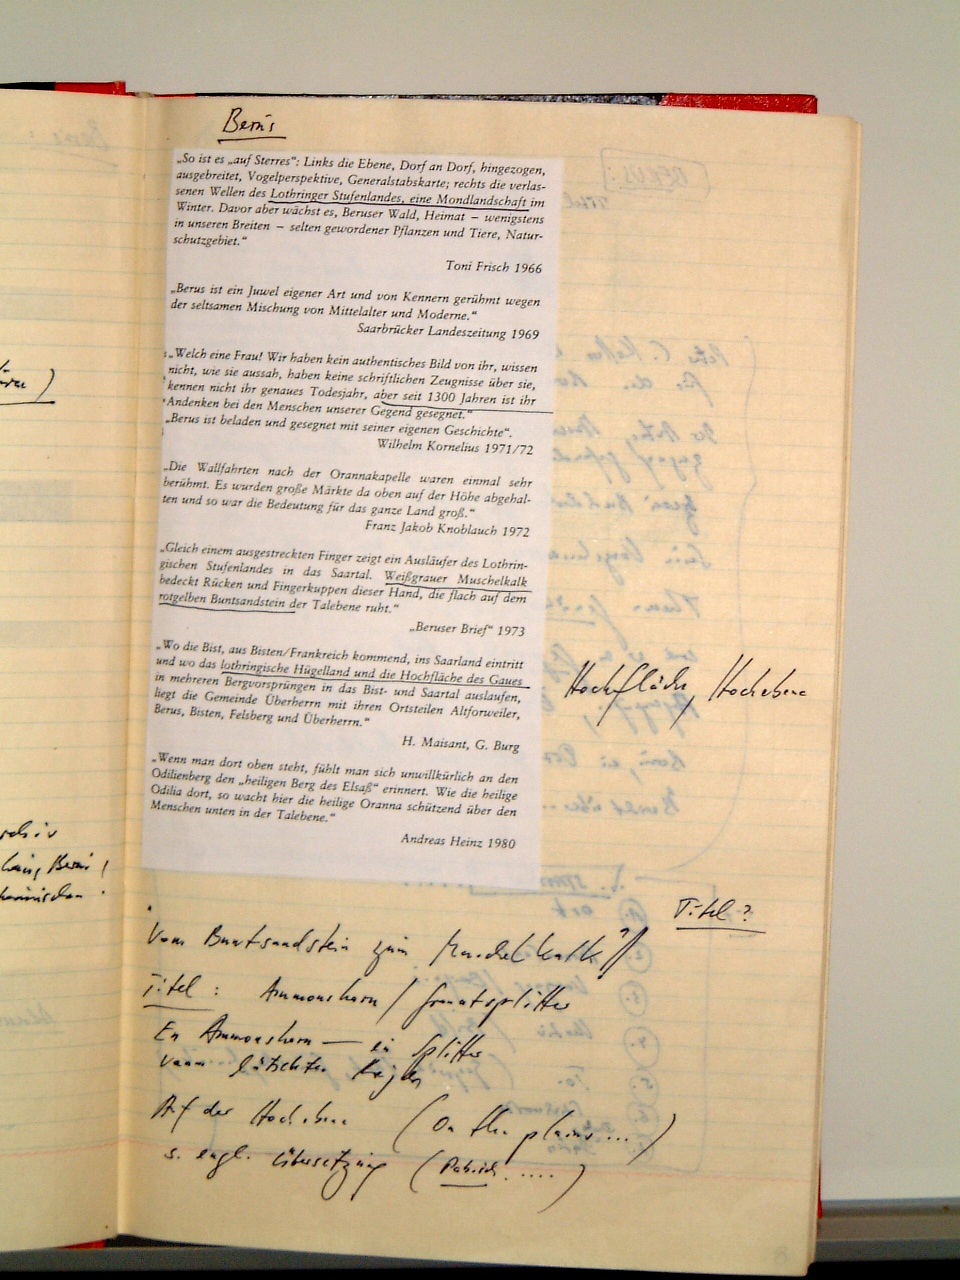 Berus
„So ist es „auf Sterres“: Links die Ebene, Dorf an Dorf, hingezogen,
ausgebreitet, Vogelperspektive, Generalstabskarte; rechts die verlas-
senen Wellen des Lothringer Stufenlandes, eine Mondlandschaft im
Winter. Davor aber wächst es, Beruser Wald, Heimat – wenigstens
in unseren Breiten – selten gewordener Pflanzen und Tiere, Natur-
schutzgebiet.“
Toni Frisch 1966
„Berus ist ein Juwel eigener Art und von Kennern gerühmt wegen
der seltsamen Mischung von Mittelalter und Moderne.“
Saarbrücker Landeszeitung 1969
„Welch eine Frau! Wir haben kein authentisches Bild von ihr, wissen
nicht, wie sie aussah, haben keine schriftlichen Zeugnisse über sie,
kennen nicht ihr genaues Todesjahr, aber seit 1300 Jahren ist ihr
Andenken bei den Menschen unserer Gegend gesegnet.“
„Berus ist beladen und gesegnet mit seiner eigenen Geschichte“.
Wilhelm Kornelius 1971/72
„Die Wallfahrten nach der Orannakapelle waren einmal sehr
berühmt. Es wurden große Märkte da oben auf der Höhe abgehal-
ten und so war die Bedeutung für das ganze Land groß.“
Franz Jakob Knoblauch 1972
„Gleich einem ausgestreckten Finger zeigt ein Ausläufer des Lothrin-
gischen Stufenlandes in das Saartal. Weißgrauer Muschelkalk
bedeckt Rücken und Fingerkuppen dieser Hand, die flach auf dem
rotgelben Buntsandstein der Talebene ruht.“
„Beruser Brief“ 1973
„Wo die Bist, aus Bisten/Frankreich kommend, ins Saarland eintritt
und wo das lothringische Hügelland und die Hochfläche des Gaues
in mehreren Bergvorsprüngen in das Bist- und Saartal auslaufen,
liegt die Gemeinde Überherrn mit ihren Ortsteilen Altforweiler,
Berus, Bisten, Felsberg und Überherrn.“
H. Maisant, G. Burg
Hochfläche, Hochebene
„Wenn man dort oben steht, fühlt man sich unwillkürlich an den
Odilienberg den „heiligen Berg des Elsaß“ erinnert. Wie die heilige
Odilia dort, so wacht hier die heilige Oranna schützend über den
Menschen unten in der Talebene.“
Andreas Heinz 1980
Titel?
Vom Buntsandstein zum Muschelkalk?
Titel: Ammonshorn / Granatsplitter
Ein Ammonshorn — ein Splitter
vom letzten
Auf der Hochebene (On the plains...)
s. engl. Übersetzung (